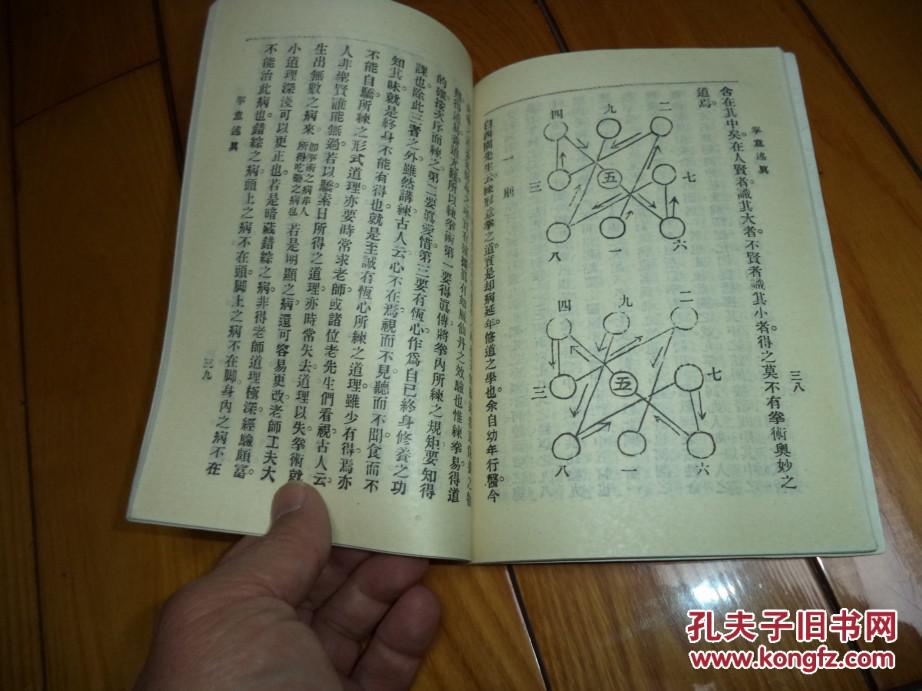 拳意述真
三八
舍在其中矣。在人賢者識其大者。不賢者識其小者。得之莫不有拳術奧妙之
道焉。
四
九
二
三
五
七
八
一
六
四
九
二
三
五
七
八
一
六
一則
白西園先生云。練形意拳之道。實是却病延年。修道之學也。余自幼年行醫。今
的確按次序而練之。第二要眞愛惜。第三要有恆心。作爲自己終身修養之功
課也。除此三者之外。雖然講練。古人云。心不在焉。視而不見。聽而不聞。食而不
知其味。就是終身不能有得也。就是至誠有恆心。所練之道理。雖少有得焉。亦
不能自驕。所練之形式道理。亦要時常求老師或諸位老先生們看視。古人云。
人非聖賢。誰能無過。若以驕素日所得之道理。亦時常失去。道理以失。拳術就
生出無數之病來。
即拳術之病非人
所得吃藥之病也
若是明顯之病。還可容易更改。老師工夫大
小。道理深淺。可以更正也。若是暗藏錯綜之病。非得老師道理極深。經驗頗富。
不能治此病也。錯綜之病。頭上之病不在頭。脚上之病不在脚。身內之病不在
拳意述眞
三九
孔夫子旧书网
www.kongfz.com